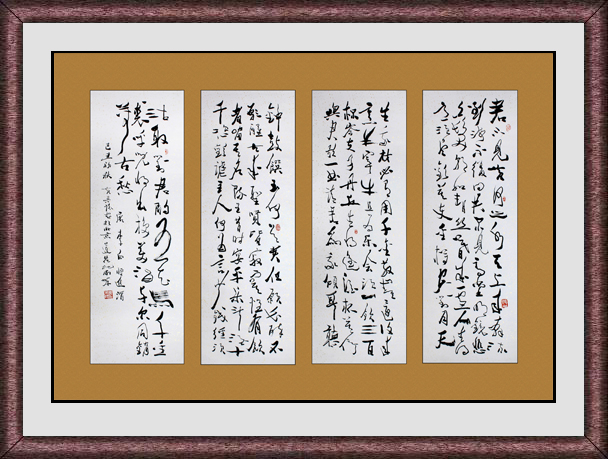 君不見黄河之水天上来奔流
到海不復回君不見高堂明鏡悲
白髮朝如青絲暮成雪人生得
意須盡歡莫使金樽空對月天
生我材必有用千金散盡還復来
烹羊宰牛且為樂會須一飲三百
杯岑夫子丹丘生将進酒杯莫停
與君歌一曲請君為我傾耳聽
鐘鼓饌玉何足貴但願長醉不
願醒古来聖賢皆寂寞惟有飲
者留其名陳王昔時宴平樂斗酒十
千恣歡謔主人何為言少錢徑須
沽取對君酌五花馬千金
裘呼兒将出換美酒與爾同銷
萬古愁
録李白将進酒
己丑秋